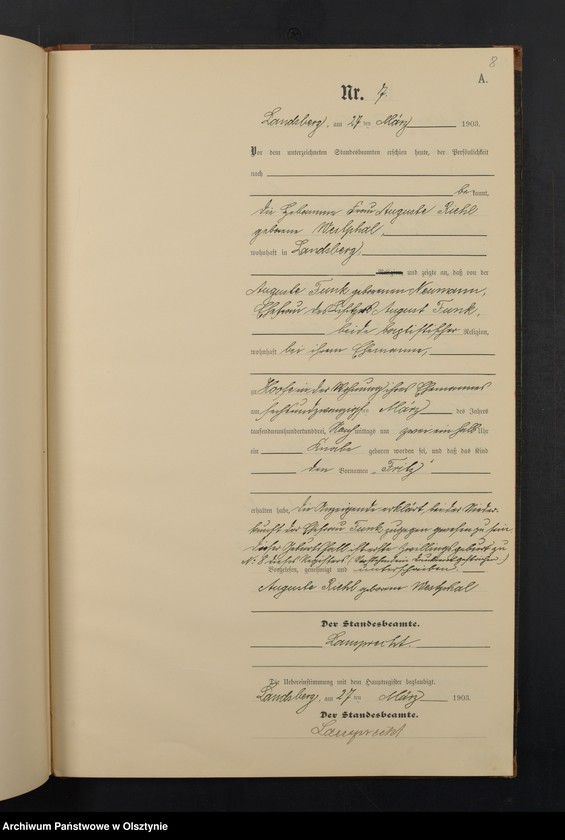 8
A.
Nr. 7
Landsberg, am 27 ten März 1903.
Vor dem unterzeichneten Standesbeamten erschien heute, der Persönlichkeit
nach
be kannt,
die Hebamme Frau Auguste Riehl
geborne Westphal,
wohnhaft in Landsberg,
Religion, und zeigte an, daß von der
Auguste Funk gebornen Neumann,
Ehefrau des August Funk,
beide baptistischer Religion,
wohnhaft bei ihrem Ehemanne,
zu Hoofe in der Wohnung ihres Ehemannes
am sechsundzwanzigsten März des Jahres
tausendneunhundertunddrei, Nachmittags um zwei ein halb Uhr
ein Knabe geboren worden sei, und daß das Kind
den Vornamen „Fritz"
erhalten habe, die Anzeigende erklärt bei der Nieder-
kunft der Ehefrau Funk zugegen gewesen zu sein
Dieser Geburtsfall ist erste Zwillingsgeburt zu
No 8 dieses Registers. Vorstehend ein Druckwort gestrichen.
Vorgelesen, genehmigt und unterschrieben
Auguste Riehl geborne Westphal
Der Standesbeamte.
Lamprecht.
Die Uebereinstimmung mit dem Hauptregister beglaubigt.
Landsberg, am 27 ten März 1903.
Der Standesbeamte.
Lamprecht
Archiwum Państwowe w Olsztynie